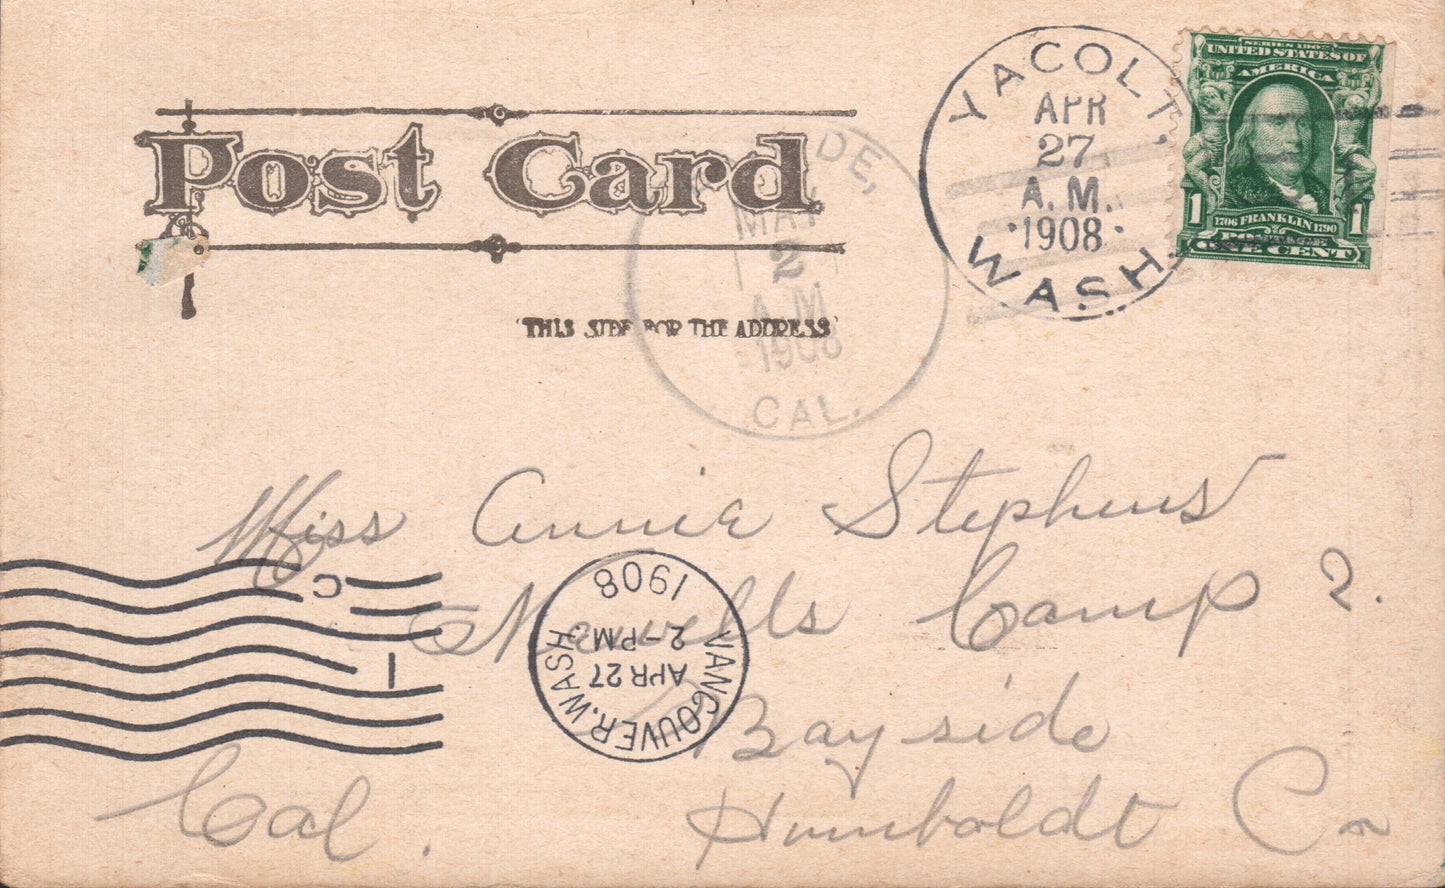 YACOLT, WASH.
APR
27
A.M.
1908
SERIES 1902
UNITED STATES OF
AMERICA
1 1706 FRANKLIN 1790 1
POSTAGE
ONE CENT
Post Card
DE,
MAY
2
A.M.
1908
CAL.
THIS SIDE FOR THE ADDRESS
Miss Annie Stephens
Newells Camp 2.
Bayside
Humboldt Co
Cal.
VANCOUVER, WASH.
APR 27
2-PM
1908
C
1